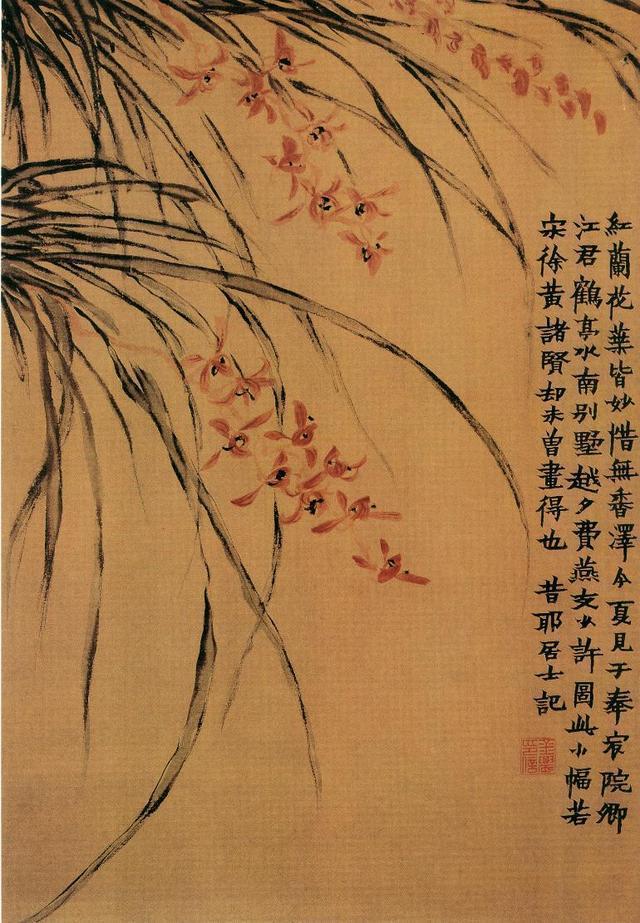 紅蘭花葉皆妙惜無香澤今夏見于奉宸院卿
江君鶴亭水南别墅越夕費燕支少許圖此小幅若
宋徐黄諸賢却未曾畫得也 昔耶居士記
金農印信